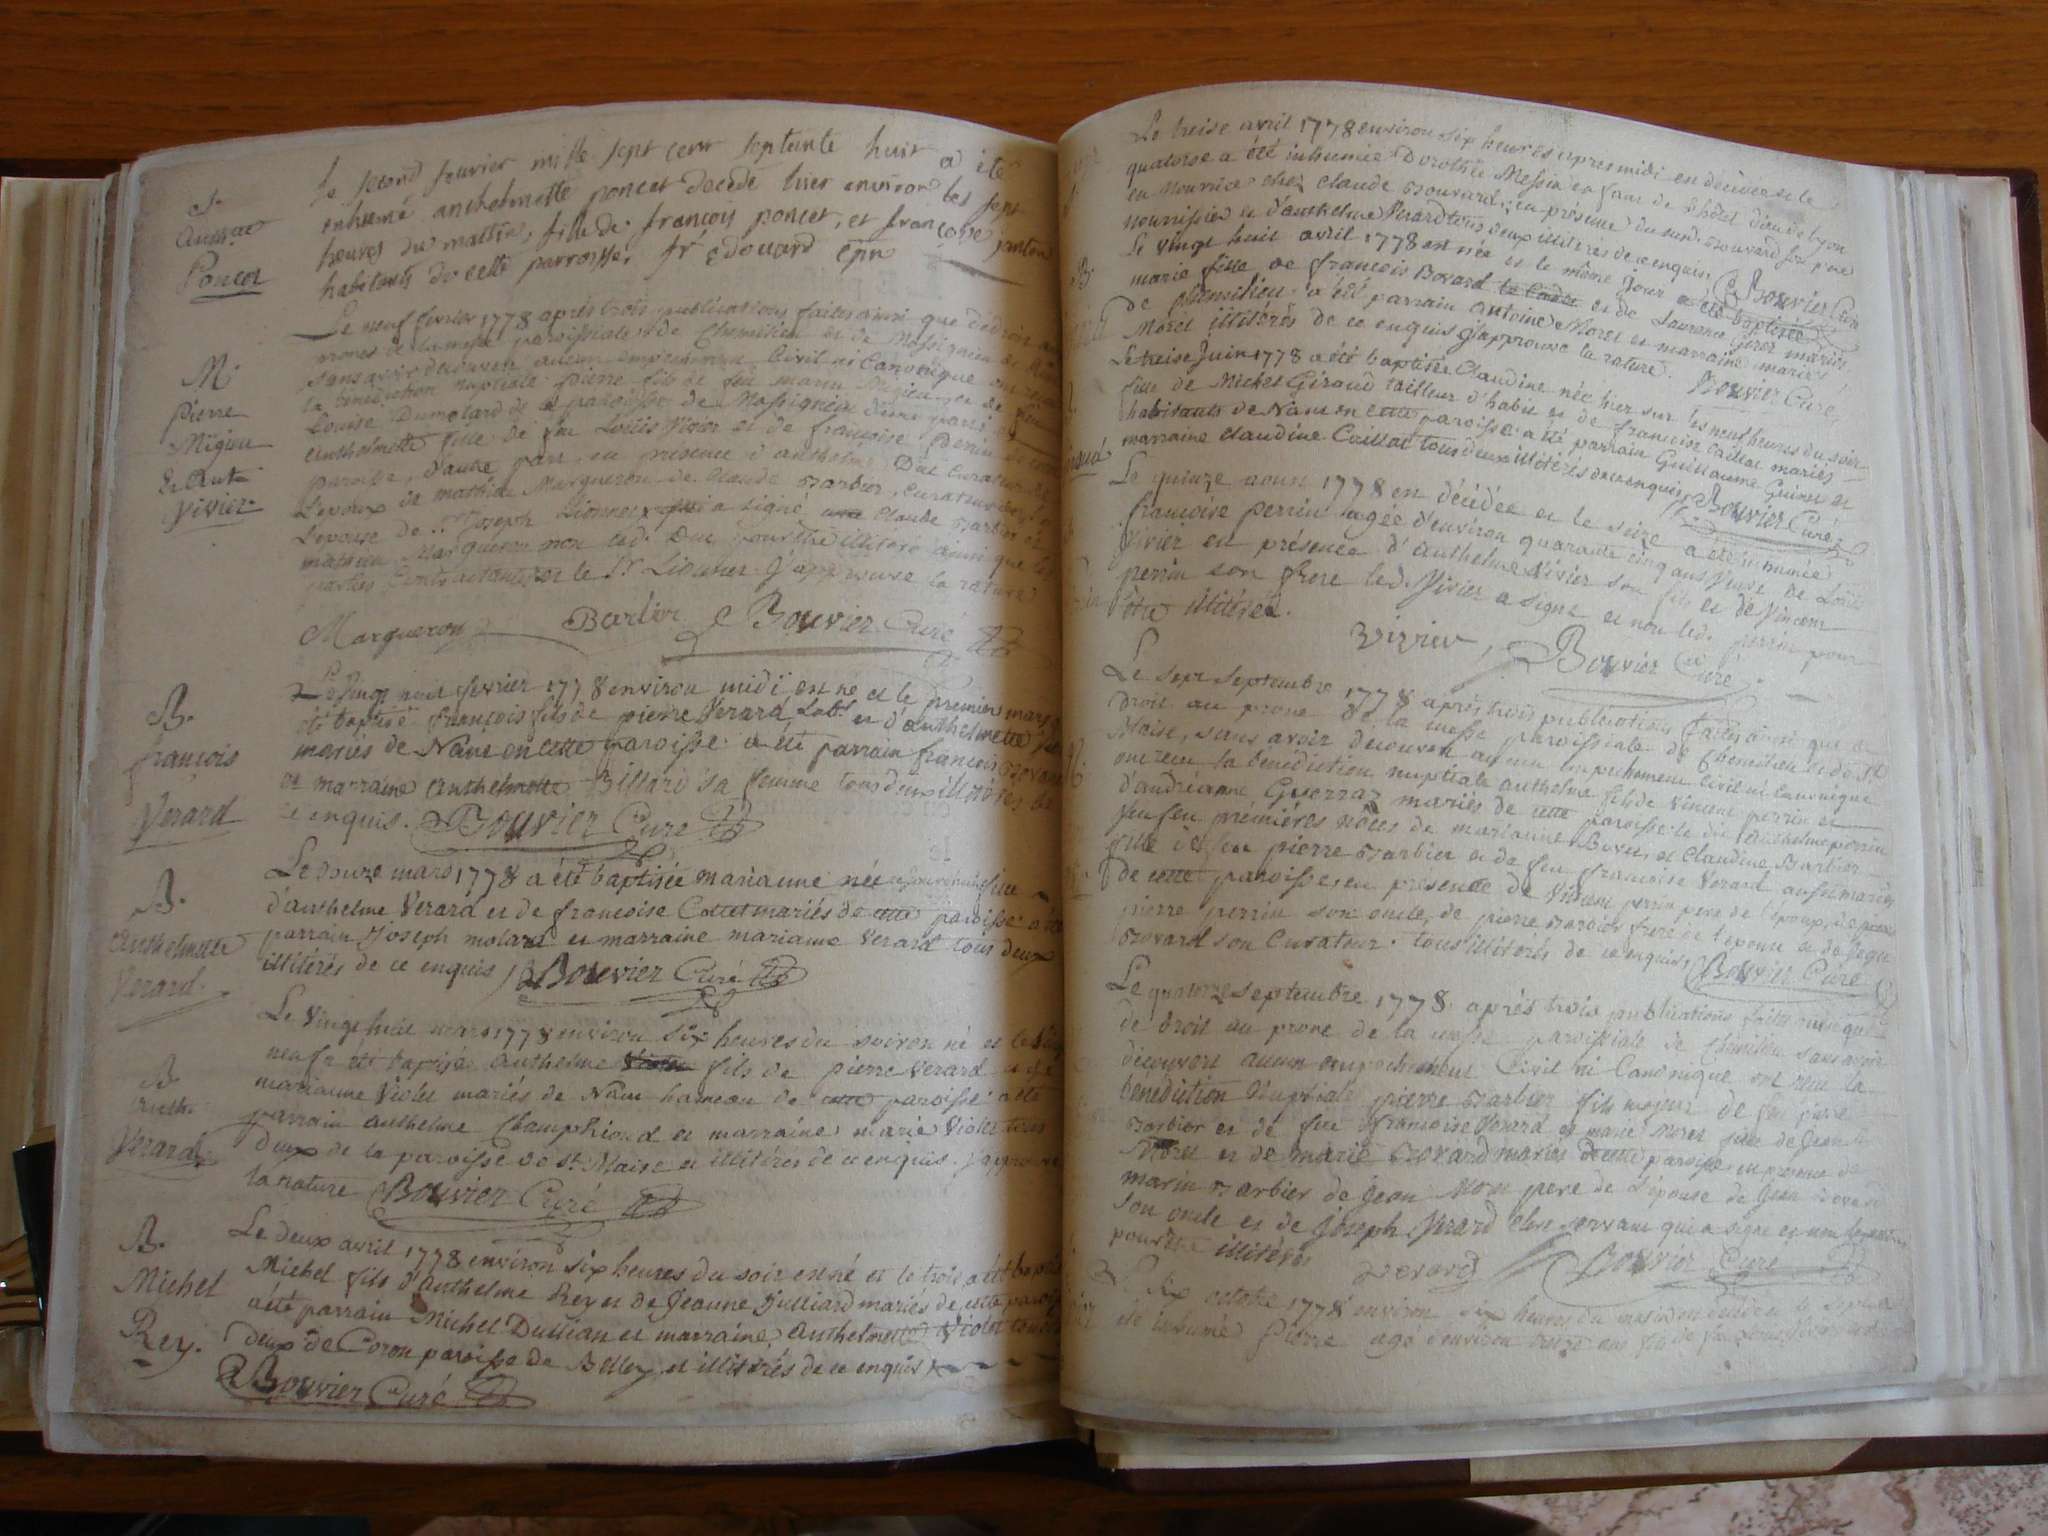 S.
Poncet
le second fevrier mille sept cent septente huit a été
enhumé anthelmette poncet decede hier environ les sept
heures du mattin, fille de françois poncet, et françoise janton
habitants de cette parroisse,
M.
Pierre
Migieu
Et Ant
Vivier
Le neuf fevrier 1778 après trois publications faites ainsi que de droit au
prones de la messe paroissiale de Chemilieu et de Massignieu de
sans avoir decouvert aucun empechement Civil ni Canonique ont
la benediction nuptiale pierre fils de feu Migieu et de
Louise Dumolard de paroisse de Massignieu d'une part et
anthelmette fille de feu Loüis Vivier et de françoise Perrin de cette
paroisse, d'autre part, en presence d'anthelme Duc Curateur de
L'epoux de mathieu Margueron de Claude Barbier, Curateur de
L'epouse de Sr. Joseph Lionnet qui a signé Claude Barbier et
mathieu Margueron non led. Duc pour être illiteré ainsi que les
parties Contractantes et le Sr. Lionnet J'approuve la rature
Margueron Barbier Bouvier Curé
B.
françois
Verard
Le vingt huit fevrier 1778 environ midi est né et le premier mars a
été baptisé françois fils de pierre Verard Lab. et d'anthelmette
mariés de Nant en cette paroisse a été parrain francois Bovard
et marraine anthelmette Billard sa femme tous deux illiterés de
ce enquis. Bouvier Curé
B.
Anthelmette
Verard.
Le douze mars 1778 a été baptisée marianne née aujourdhui fille
d'anthelme Verard et de francoise Cottet mariés de cette paroisse a été
parrain Joseph molard et marraine marianne Verard tous deux
illiterés de ce enquis Bouvier Curé
B.
Anth.
Verard
Le vingt huit mars 1778 environ six heures du soir est né et le vingt
neuf a été baptisé anthelme fils de pierre Verard et de
marianne Violet mariés de Nant hameau de cette paroisse a été
parrain anthelme Champhioud et marraine marie Violet tous
deux de la paroisse de St. Maise et illiterés de ce enquis. j'approuve
la rature Bouvier Curé
B.
Michel
Rey.
Le deux avril 1778 environ six heures du soir est né et le trois a été baptisé
Michel fils d'anthelme Rey et de Jeanne Julliard mariés de cette paroisse
a été parrain Michel Dullian et marraine anthelmette Violet tous
deux de Coron paroisse de Belley et illiterés de ce enquis
Bouvier Curé
Le treise avril 1778 environ six heures apres midi est décédée et le
quatorse a été inhumée Dorothée Messia enfant de l'hôtel dieu de Lyon
en nourrice chez Claude Bouvard, en présence du sus d. Bouvard son pere
nourrissier et d'anthelme Verard tous deux illiterés de ce enquis. Bouvier Curé
Le vingt huit avril 1778 est née et le même jour a été baptisée
marie fille de françois Bovard le Cadet et de Laurence Giroz mariés
de chemilieu a été parrain antoine Moret et marraine marie
Moret illiterés de ce enquis J'approuve la rature. Bouvier Curé
Le treise Juin 1778 a été baptisée Claudine née hier sur les neuf heures du soir
fille de Michel Giraud tailleur d'habit et de francoise Caillat mariés
habitants de Nant en cette paroisse a été parrain Guillaume Guinet et
marraine claudine Caillat tous deux illiterés de ce enquis Bouvier Curé
Le quinze aoust 1778 est décédée et le seize a été inhumée
francoise perrin agée d'environ quarante cinq ans veuve de Loüis
Vivier en présence d'anthelme Vivier son fils et de Vincent
perrin son frere led. Vivier a signé et non led. perrin pour
être illiteré.
Vivier, Bouvier Curé
Le sept septembre 1778 après trois publications faites ainsi que de
droit au prone de la messe paroissiale de Chemilieu et de St
Maise, sans avoir decouvert aucun empechement Civil ni Canonique
ont recu la bénédiction nuptiale anthelme fils de Vincent perrin et
d'andréanne Guerraz mariés de cette paroisse le dit anthelme perrin
veuf en prémières nôces de marianne Bovet, et Claudine Barbier
fille de feu pierre Barbier et de feu francoise Verard aussi mariés
de cette paroisse, en présence de Vincent perrin pere de l'époux, de
pierre perrin son oncle, de pierre Barbier frere de l'epouse et de
Bovard son Curateur. tous illiterés de ce enquis, Bouvier Curé
Le quatorze septembre 1778 après trois publications faites ainsi que
de droit au prone de la messe paroissiale de Chemilieu sans avoir
découvert aucun empechement Civil ni Canonique ont recu la
bénédiction Nuptiale pierre Barbier fils majeur de feu pierre
Barbier et de feu francoise Verard et marie Moret fille de Jean
Moret et de marie Bovard mariés de cette paroisse en présence de
marin Barbier de Jean Moret pere de L'épouse de Jean Bovard
son oncle et de Joseph Verard clerc servant qui a signé et non les autres
pour être illiterés Verard Bouvier Curé
Le six octobre 1778 environ six heures du matin est décédé et le sept a
été inhumé Pierre agé d'environ treize ans fils de